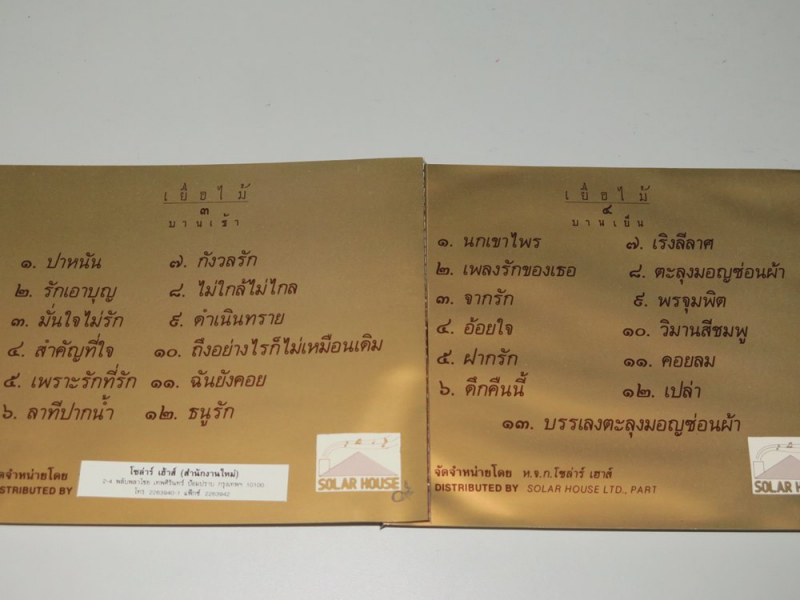 เยื่อไม้
๓
บานเช้า
๑. ปาหนัน
๒. รักเอาบุญ
๓. มั่นใจไม่รัก
๔. สำคัญที่ใจ
๕. เพราะรักที่รัก
๖. ลาทีปากน้ำ
๗. กังวลรัก
๘. ไม่ใกล้ไม่ไกล
๙. ดำเนินทราย
๑๐. ถึงอย่างไรก็ไม่เหมือนเดิม
๑๑. ฉันยังคอย
๑๒. ธนูรัก
จัดจำหน่ายโดย
DISTRIBUTED BY
โซล่าร์ เฮ้าส์ (สำนักงานใหม่)
2-4 พลับพลาไชย เทพศิรินทร์ ป้อมปราบ กรุงเทพฯ 10100
โทร. 2263940-1 แฟ๊กซ์ 2263942
SOLAR HOUSE
เยื่อไม้
๔
บานเย็น
๑. นกเขาไพร
๒. เพลงรักของเธอ
๓. จากรัก
๔. อ้อยใจ
๕. ฝากรัก
๖. ดึกคืนนี้
๗. เริงลีลาศ
๘. ตะลุงมอญซ่อนผ้า
๙. พรจุมพิต
๑๐. วิมานสีชมพู
๑๑. คอยลม
๑๒. เปล่า
๑๓. บรรเลงตะลุงมอญซ่อนผ้า
จัดจำหน่ายโดย ห.จ.ก.โซล่าร์ เฮาส์
DISTRIBUTED BY SOLAR HOUSE LTD., PART
SOLAR HOUS